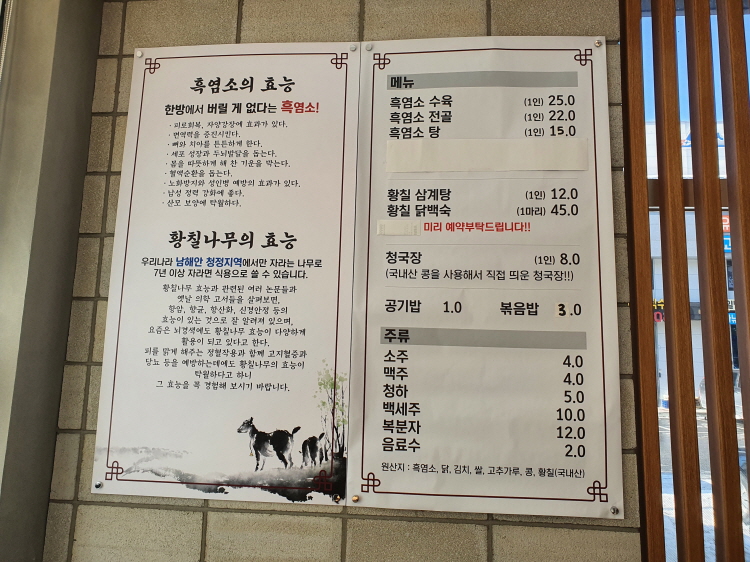 흑염소의 효능
한방에서 버릴 게 없다는 흑염소!
· 피로회복, 자양강장에 효과가 있다.
· 면역력을 증진시킨다.
· 뼈와 치아를 튼튼하게 한다.
· 세포 성장과 두뇌발달을 돕는다.
· 몸을 따뜻하게 해 찬 기운을 막는다.
· 혈액순환을 돕는다.
· 노화방지와 성인병 예방의 효과가 있다.
· 남성 정력 강화에 좋다.
· 산모 보양에 탁월하다.
황칠나무의 효능
우리나라 남해안 청정지역에서만 자라는 나무로
7년 이상 자라면 식용으로 쓸 수 있습니다.
황칠나무 효능과 관련된 여러 논문들과
옛날 의학 고서들을 살펴보면,
항암, 항균, 항산화, 신경안정 등의
효능이 있는 것으로 잘 알려져 있으며,
요즘은 뇌경색에도 황칠나무 효능이 다양하게
활용이 되고 있다고 한다.
피를 맑게 해주는 정혈작용과 함께 고지혈증과
당뇨 등을 예방하는데에도 황칠나무의 효능이
탁월하다고 하니
그 효능을 꼭 경험해 보시기 바랍니다.
메뉴
흑염소 수육 (1인) 25.0
흑염소 전골 (1인) 22.0
흑염소 탕 (1인) 15.0
황칠 삼계탕 (1인) 12.0
황칠 닭백숙 (1마리) 45.0
미리 예약부탁드립니다!!
청국장 (1인) 8.0
(국내산 콩을 사용해서 직접 띄운 청국장!!)
공기밥 1.0 볶음밥 3.0
주류
소주 4.0
맥주 4.0
청하 5.0
백세주 10.0
복분자 12.0
음료수 2.0
원산지 : 흑염소, 닭, 김치, 쌀, 고추가루, 콩, 황칠(국내산)